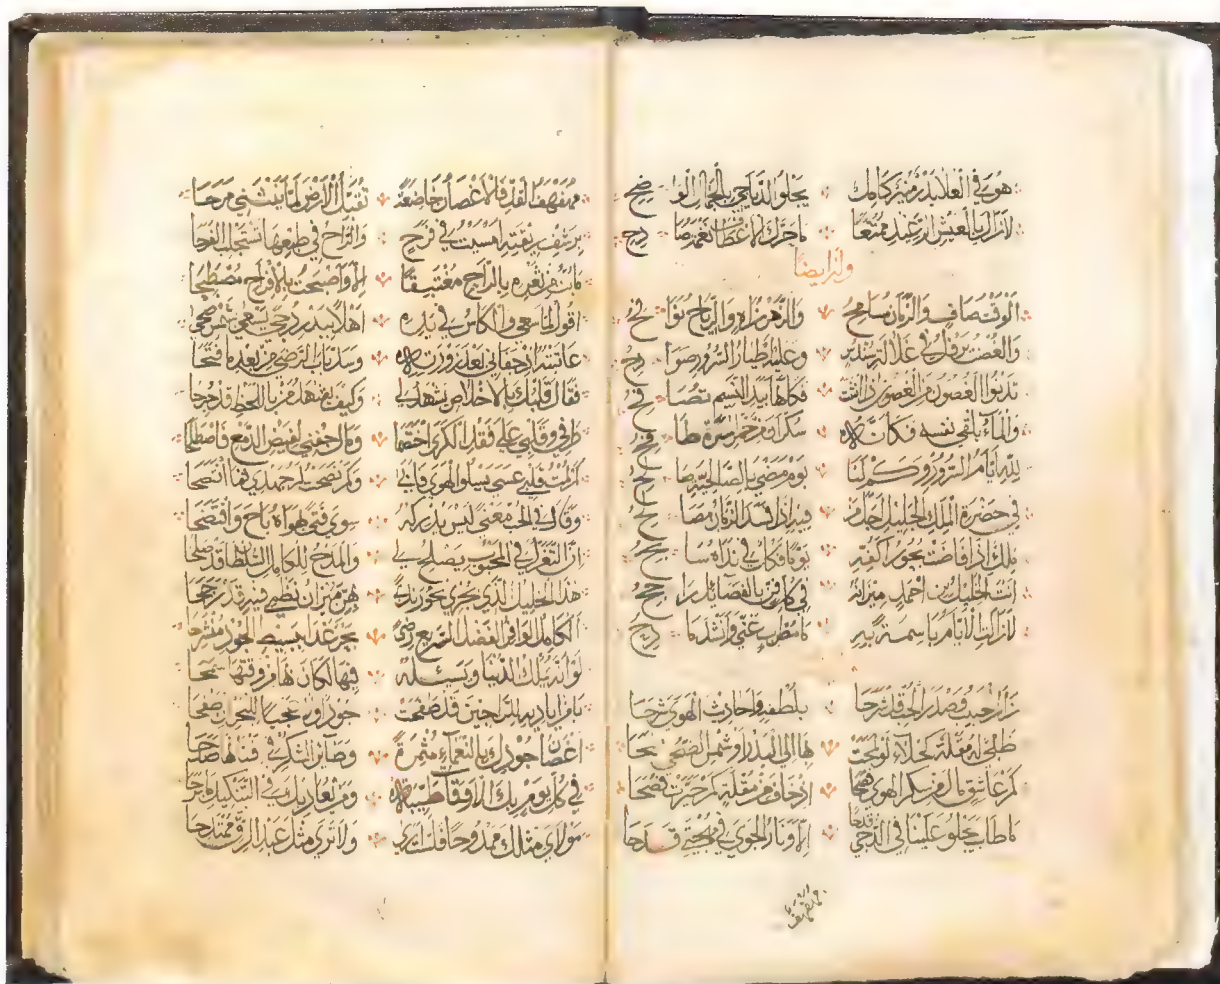 هُوَ في العُلا بَدْرٌ مُنيرٌ كامِلٌ ∴ يَجْلو الدَّياجي بالجَمالِ الواضِحِ
لا زالَ بالعَيْشِ الرَّغيدِ مُمَتَّعًا ∴ ما حَرَّكَ الأعْطافَ نَغْمَةُ صادِحِ
وله ايضًا
الوَقْتُ صافٍ والزَّمانُ مُسامِحُ ∴ والزَّهْرُ زاهٍ والرِّياحُ نَوافِحُ
والغُصْنُ يَرْفُلُ في غلالة سندس ∴ وعليه أطيار السرور صوادح
تدنوا الغصون من الغصون إذا انثنت ∴ فكأنها بيد النسيم تصافح
والماء يلقى نفسه فكأنه ∴ سكران من خمر المسرة طافح
لله أيام السرور وكم لنا ∴ يوم مضى بالصالحية صالح
في حضرة الملك الخليل ∴
ملك إذا فاضت بحور أكفه ∴ يومًا فكل في نداه سابح
أنت الخليل بن أحمد ميزانه ∴ في كل فن بالفضائل راجح
لا زالت الأيام باسمة به ∴ ما مطرب غنى وأنشد مادح
زار الحبيب وصدر الحب قد شرحا ∴ بلطفه وأحاديث الهوى شرحا
ظبي له مقلة كحلاء لو لمحت ∴ بها إلى البدر أو شمس الضحى
كم عاشق مال من سكر الهوى ∴ إذ خاف من مقلة كم جرت
ما طاب يجلو علينا في الدجى قدحا ∴ إلا ونار الجوى في مهجتي قدحا
مهفهف
مهفهف القد فالأغصان خاضعة ∴ تقبل الأرض لما ينثني مرحا
برشف ريقته أمسيت في فرح ∴ والراح في طبعها تستجلب الفرحا
ما بت من ثغره بالراح مغتبقًا ∴ إلا وأصبحت بالأفراح مصطبحا
أقول لما سعى والكاس في يده ∴ أهلًا ببدر دجى يسعى بشمس ضحى
عاتبته إذ جفاني بعد زورته ∴ وسد باب الرضى من بعد ما فتحا
فقال قلبك بالإخلاص يشهد لي ∴ وكيف يشهد من باللحظ قد جرحا
طرفي وقلبي على فقد الكرى اختصما ∴ ومال جفني لفيض الدمع فاصطلحا
ألزمت قلبي عسى يسلوا الهوى فأبى ∴ وكم نصحت له جهدي فما انتصحا
وقال لي الحب معنى ليس يدركه ∴ سوى فتى بهواه باح وافتضحا
إن التغزل في المحبوب يصلح لي ∴ والمدح للكامل السلطان قد صلحا
هذا الخليل الذي بحري بحور ندى ∴ من ميزان نظمي فيه قد رجحا
الكامل الوافر الفضل السريع ∴ بحر غدا ببسيط الجود منشرحا
لو أنه يملك الدنيا ويسئله ∴ فيها لكان بها من وقتها سمحا
يا من أياديه للراجين قد صفحت ∴ جودًا عجبًا للبحر إن صفحا
أغصان جودك بالنعماء مثمرة ∴ وطائر الشكر في أفنانها صدحا
في كل يوم بك الأوقات طيبة ∴ ومن يعاديك في التنكيل ما برحا
مولاي مثلك ممدوحًا فلست أرى ∴ ولا ترى مثل عبد الرق ممتدحا